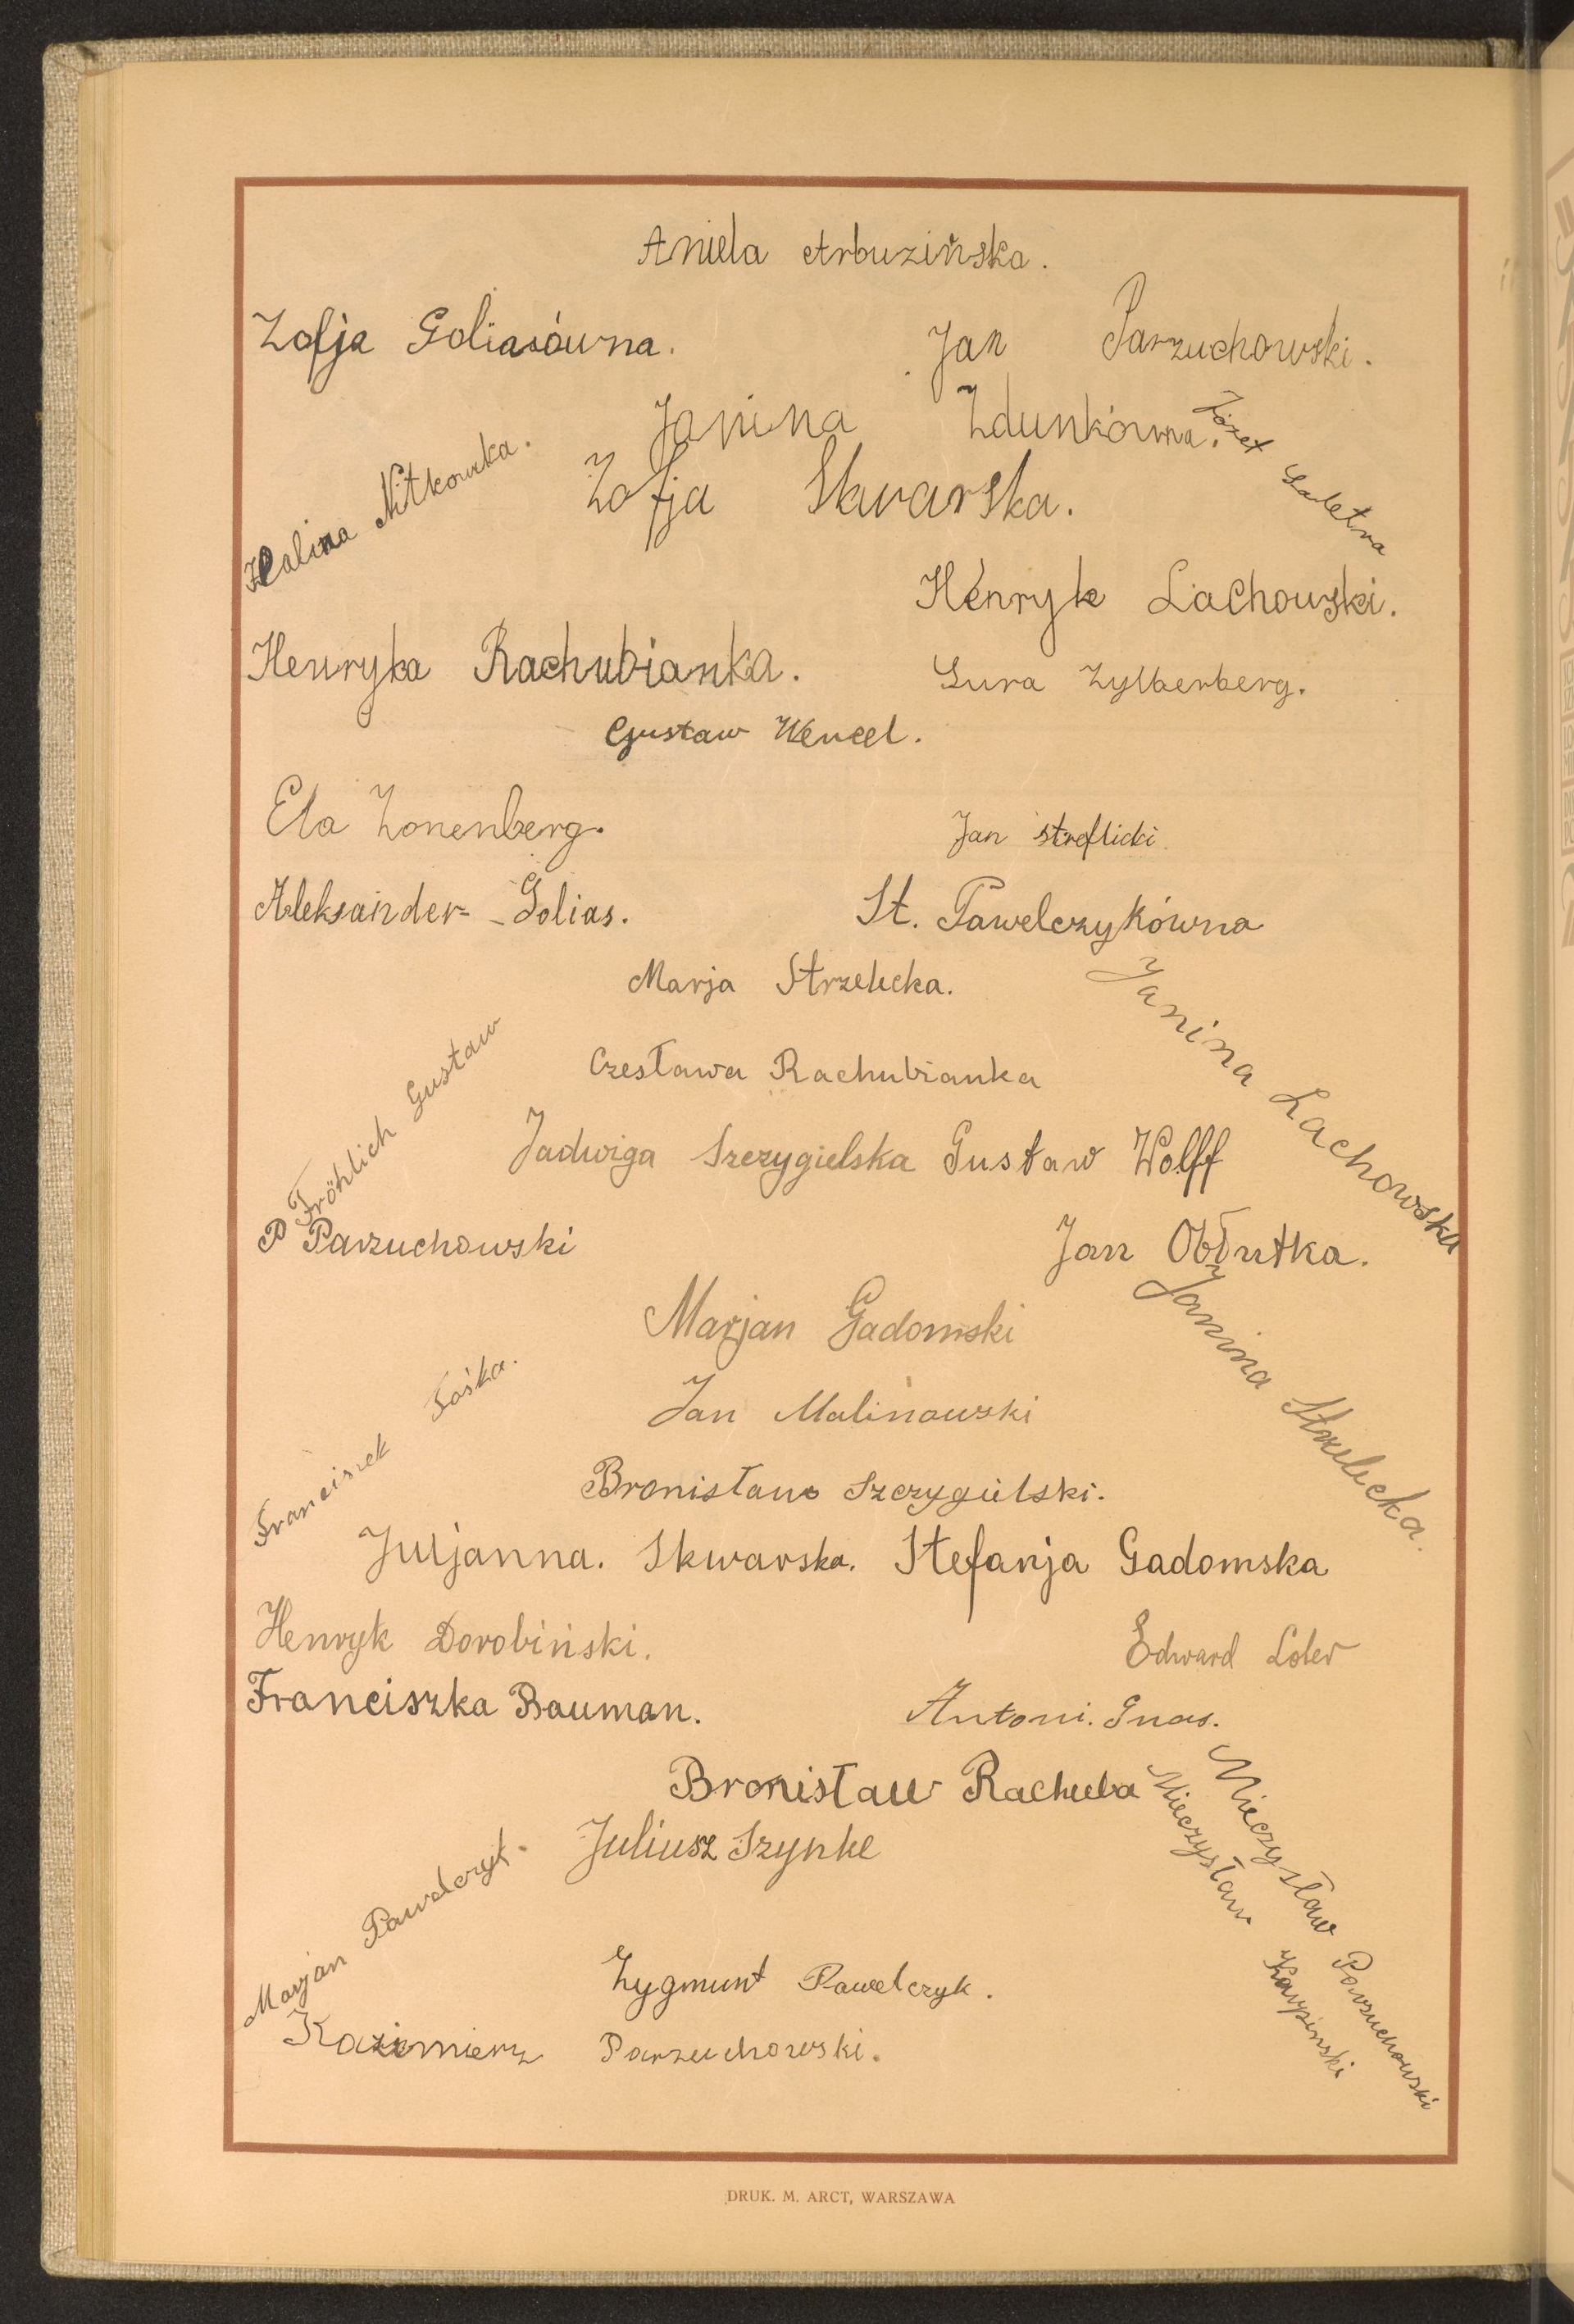 Aniela Arbuzińska.
Zofja Goliasówna.
Jan Parzuchowski.
Janina Zdunkówna.
Józef Saletra
Halina Nitkowska.
Zofja Skwarska.
Henryk Lachowski.
Henryka Rachubianka.
Sura Zylberberg.
Gustaw Wencel.
Ela Zonenberg.
Jan Streflicki.
Aleksander Golias.
St. Pawelczykówna
Marja Strzelecka.
Janina Lachowska
Czesława Rachubianka
Fröhlich Gustaw
Jadwiga Szczygielska
Gustaw Wolff
P Parzuchowski
Jan Obłutka.
Marjan Gadomski
Janina Strzelecka.
Jan Malinowski
Franciszek Fośka.
Bronisław Szczygielski.
Juljanna. Skwarska.
Stefanja Gadomska
Henryk Dorobiński.
Edward Loler
Franciszka Bauman.
Antoni. Gnas.
Bronisław Rachuba
Mieczysław Parzuchowski
Mieczysław Karpinski
Juliusz Szynke
Marjan Pawelczyk.
Zygmunt Pawelczyk.
Kazimierz Parzuchowski.
DRUK. M. ARCT, WARSZAWA